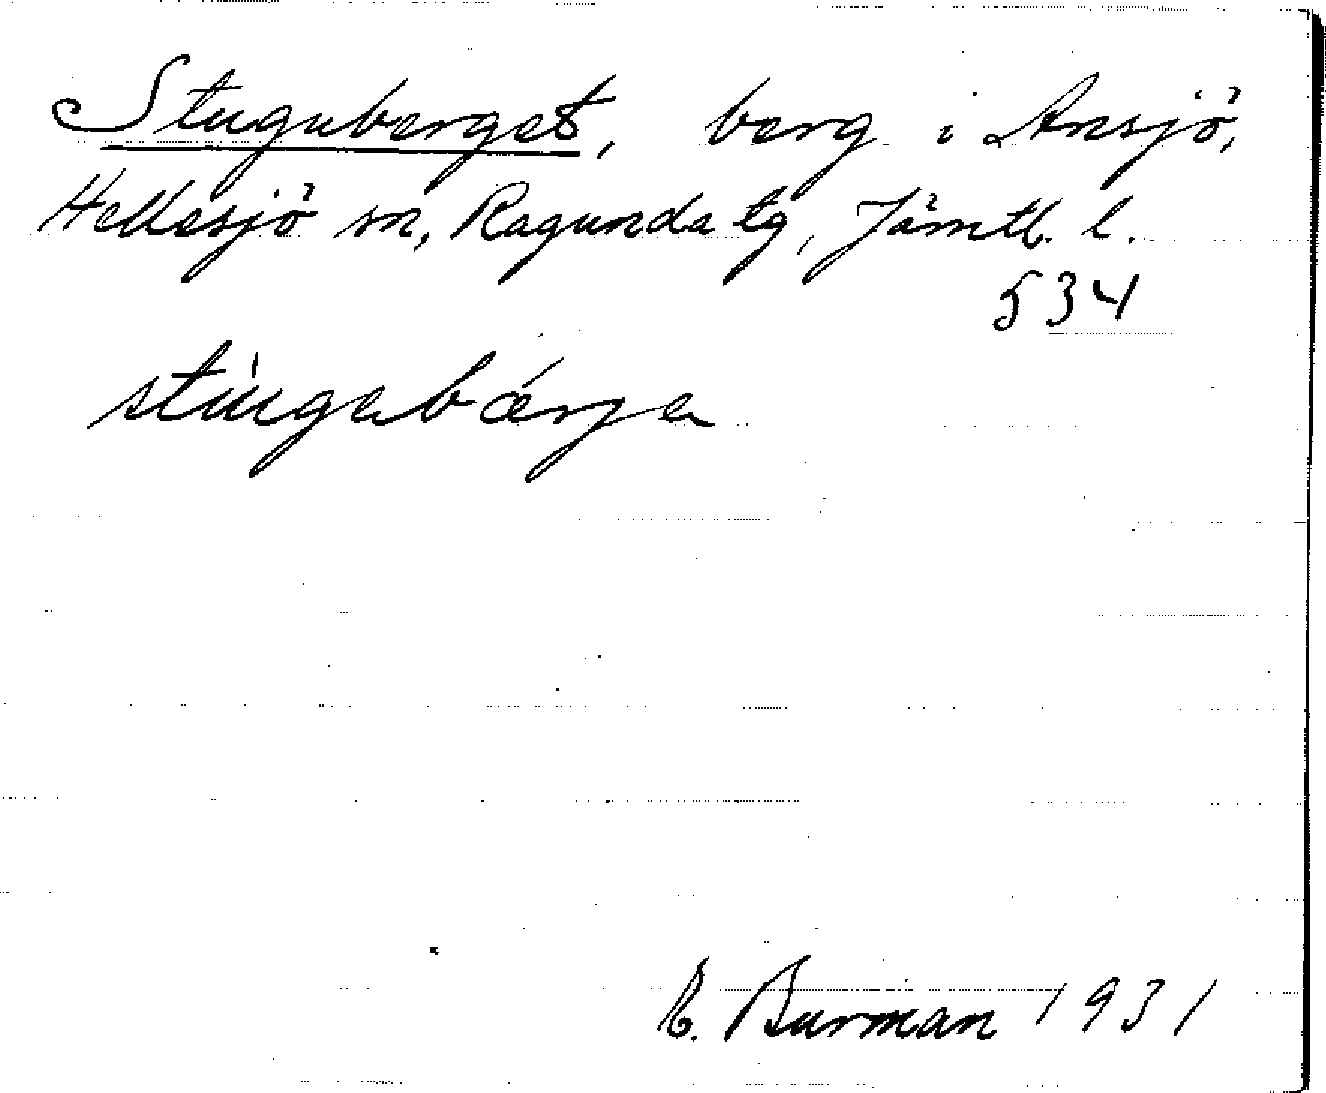 Stuguberget, berg i Ansjö,
Hellesjö sn, Ragunda tg, Jämtl. l.
534
stúgubárja
E. Burman 1931